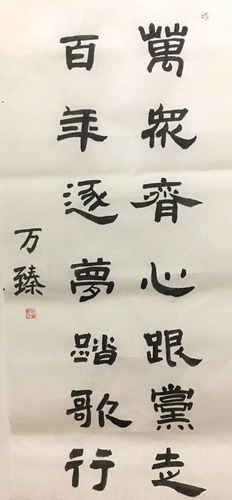 萬眾齊心跟黨走
百年逐夢踏歌行
万臻